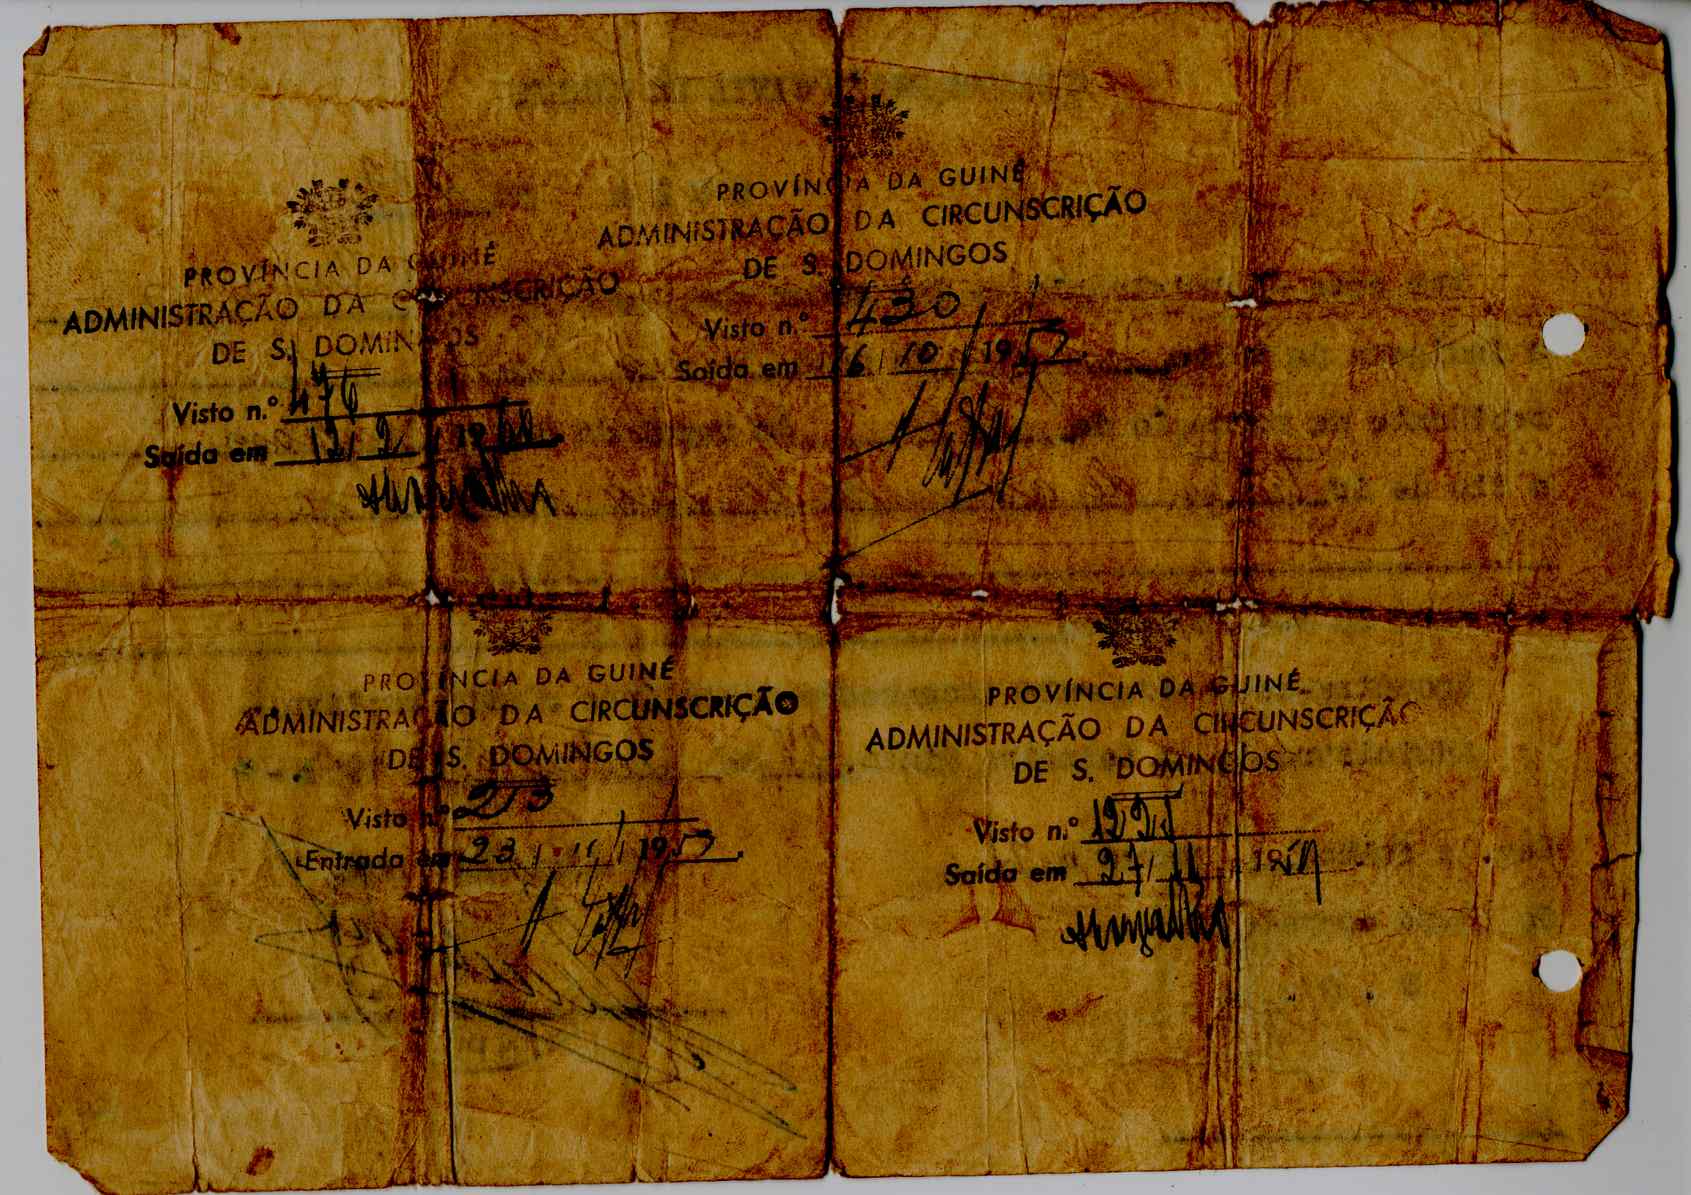 PROVÍNCIA DA GUINÉ
ADMINISTRAÇÃO DA CIRCUNSCRIÇÃO
DE S. DOMINGOS
Visto n.º 476
Saída em 12 / 2 / 1960
PROVÍNCIA DA GUINÉ
ADMINISTRAÇÃO DA CIRCUNSCRIÇÃO
DE S. DOMINGOS
Visto n.º 430
Saída em 16 / 10 / 1957
PROVÍNCIA DA GUINÉ
ADMINISTRAÇÃO DA CIRCUNSCRIÇÃO
DE S. DOMINGOS
Visto n.º 213
Entrada em 23 / 11 / 1957
PROVÍNCIA DA GUINÉ
ADMINISTRAÇÃO DA CIRCUNSCRIÇÃO
DE S. DOMINGOS
Visto n.º
Saída em 27 / 11 / 19